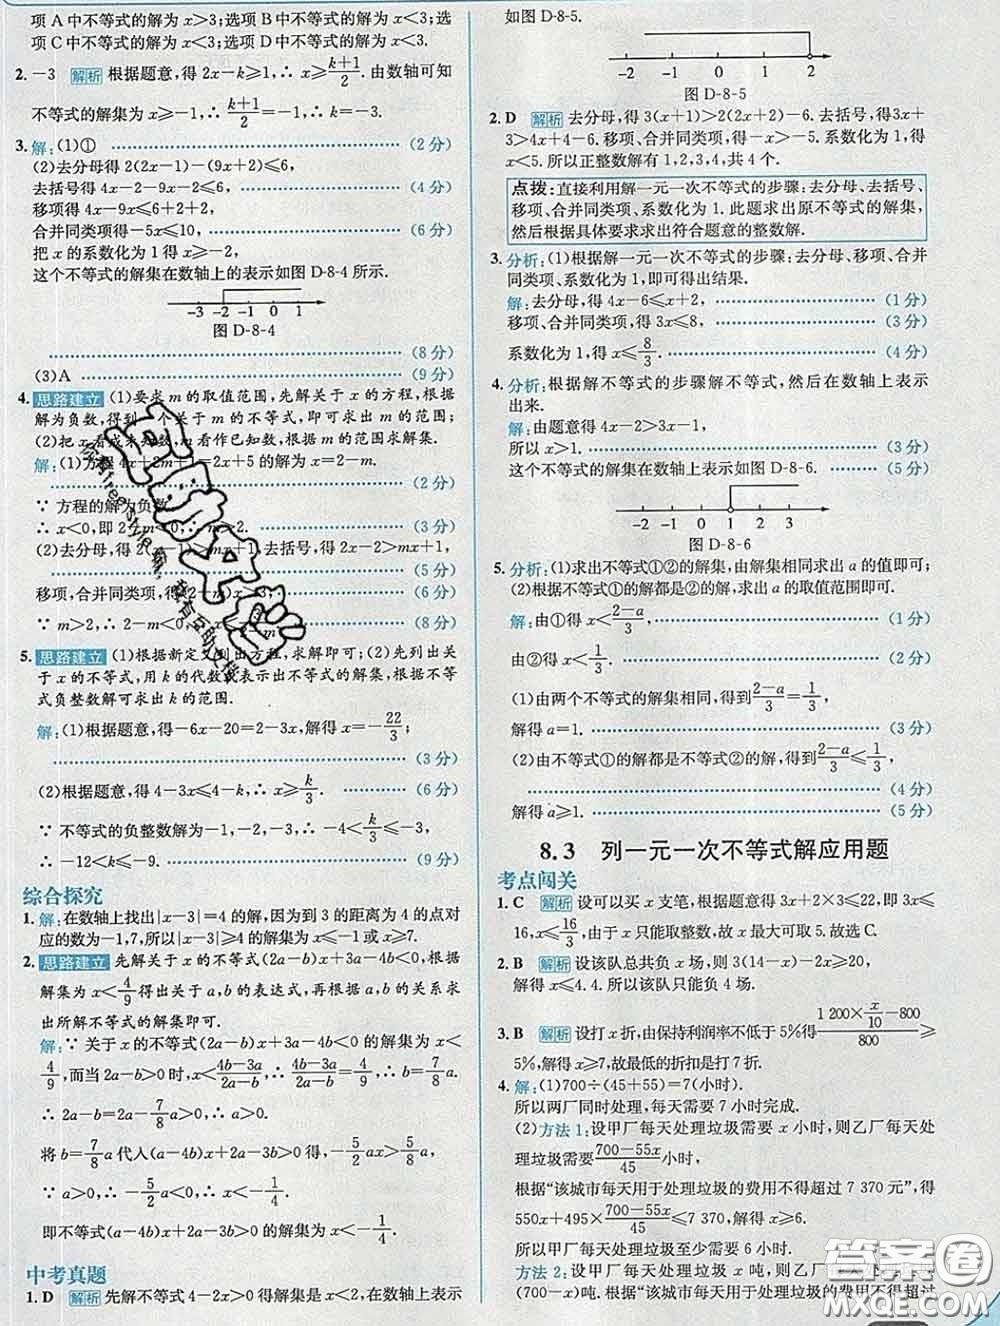 项A中不等式的解为x>3;选项B中不等式的解为x<3;选
项C中不等式的解为x<3;选项D中不等式的解为x<3.
2. −3 解析 根据题意,得2x−k≥1,∴x≥(k+1)/2.由数轴可知
不等式的解集为x≥−1,∴(k+1)/2=−1,∴k=−3.
3. 解:(1)① (2分)
(2)去分母得2(2x−1)−(9x+2)≤6,
去括号得4x−2−9x−2≤6, (4分)
移项得4x−9x≤6+2+2,
合并同类项得−5x≤10, (6分)
把x的系数化为1得x≥−2.
这个不等式的解集在数轴上的表示如图D-8-4所示.
−3 −2 −1 0 1
图D-8-4
(8分)
(3)A (9分)
4. 思路建立 (1)要求m的取值范围,先解关于x的方程,根据
解为负数,得到一个关于m的不等式,即可求出m的范围;
(2)把x看成未知数,m看作已知数,根据m的范围求解集.
解:(1)方程4x+2m+1=2x+5的解为x=2−m.
(2分)
∵方程的解为负数,
∴x<0,即2−m<0,∴m>2. (3分)
(2)去分母,得2(x−1)>mx+1,去括号,得2x−2>mx+1,
(5分)
移项,合并同类项,得(2−m)x>3,
∵m>2,∴2−m<0,∴x<3/(2−m). (8分)
5. 思路建立 (1)根据新定义列出方程,求解即可;(2)先列出关
于x的不等式,用k的代数式表示出不等式的解集,根据不等
式负整数解可求出k的范围.
解:(1)根据题意,得−6x−20=2−3x,解得x=−22/3;
(3分)
(2)根据题意,得4−3x≤4−k,∴x≥k/3. (6分)
∵不等式的负整数解为−1,−2,−3,∴−4<k/3≤−3,
∴−12<k≤−9. (9分)
综合探究
1. 解:在数轴上找出|x−3|=4的解,因为到3的距离为4的点对
应的数为−1,7,所以|x−3|≥4的解集为x≤−1或x≥7.
2. 思路建立 先解关于x的不等式(2a−b)x+3a−4b<0,根据
解集为x<4/9得出关于a,b的表达式,再根据a,b的关系求
出所解不等式的解集即可.
解:∵关于x的不等式(2a−b)x+3a−4b<0的解集为x<
4/9,而当2a−b>0时,x<(4b−3a)/(2a−b),∴(4b−3a)/(2a−b)=4/9,∴b=7/8a.
∴2a−b=2a−7/8a>0,∴a>0.
将b=7/8a代入(a−4b)x+2a−3b>0得−5/2ax>5/8a,
∵a>0,∴−5/2a<0,∴x<−1/4.
即不等式(a−4b)x+2a−3b>0的解集为x<−1/4.
中考真题
1. D 解析 先解不等式4−2x>0得解集是x<2,在数轴上表示
如图D-8-5.
−2 −1 0 1 2
图D-8-5
2. D 解析 去分母,得3(x+1)>2(2x+2)−6.去括号,得3x+
3>4x+4−6.移项、合并同类项,得−x>−5.系数化为1,得
x<5.所以正整数解有1,2,3,4,共4个.
点拨:直接利用解一元一次不等式的步骤:去分母、去括号、
移项、合并同类项、系数化为1.此题求出原不等式的解集,
然后根据具体要求求出符合题意的整数解.
3. 分析:(1)根据解一元一次不等式的步骤:去分母、移项、合并
同类项、系数化为1,即可得出结果.
解:去分母,得4x−6≤x+2, (1分)
移项、合并同类项,得3x≤8, (3分)
系数化为1,得x≤8/3. (4分)
4. 分析:根据解不等式的步骤解不等式,然后在数轴上表示
出来.
解:由题意得4x−2>3x−1,
所以x>1. (4分)
这个不等式的解集在数轴上表示如图D-8-6. (5分)
−2 −1 0 1 2 3
图D-8-6
5. 分析:(1)求出不等式①②的解集,由解集相同求出a的值即可;
(2)根据不等式①的解都是②的解,求出a的取值范围即可.
解:由①得x<(2−a)/3, (1分)
由②得x<1/3. (2分)
(1)由两个不等式的解集相同,得到(2−a)/3=1/3,
解得a=1. (3分)
(2)由不等式①的解都是不等式②的解,得到(2−a)/3≤1/3,
(4分)
解得a≥1. (5分)
8.3 列一元一次不等式解应用题
考点闯关
1. C 解析 设可以买x支笔,根据题意得3x+2×3≤22,即3x≤
16,x≤16/3,由于x只能取整数,故x最大可取5.故选C.
2. B 解析 设该队总共负x场,则3(14−x)−2x≥20,
解得x≤4.4.所以该队只能负4场.
3. B 解析 设打x折,由保持利润率不低于5%得(1 200×x/10−800)/800≥
5%,解得x≥7,故最低的折扣是打7折.
4. 解:(1)700÷(45+55)=7(小时).
所以两厂同时处理,每天需要7小时完成.
(2)方法1:设甲厂每天处理垃圾需要x小时,则乙厂每天处
理垃圾需要(700−55x)/45小时,
根据“该城市每天用于处理垃圾的费用不得超过7 370元”,得
550x+495×(700−55x)/45≤7 370,解得x≥6.
所以甲厂每天处理垃圾至少需要6小时.
方法2:设甲厂每天处理垃圾x吨,则乙厂每天处理垃圾
(700−x)吨.根据“该城市每天用于处理垃圾的费用不得超过
答案圈
MXQE.COM